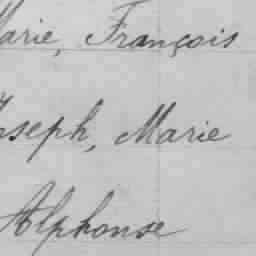 Marie, François
Joseph, Marie
Alphonse